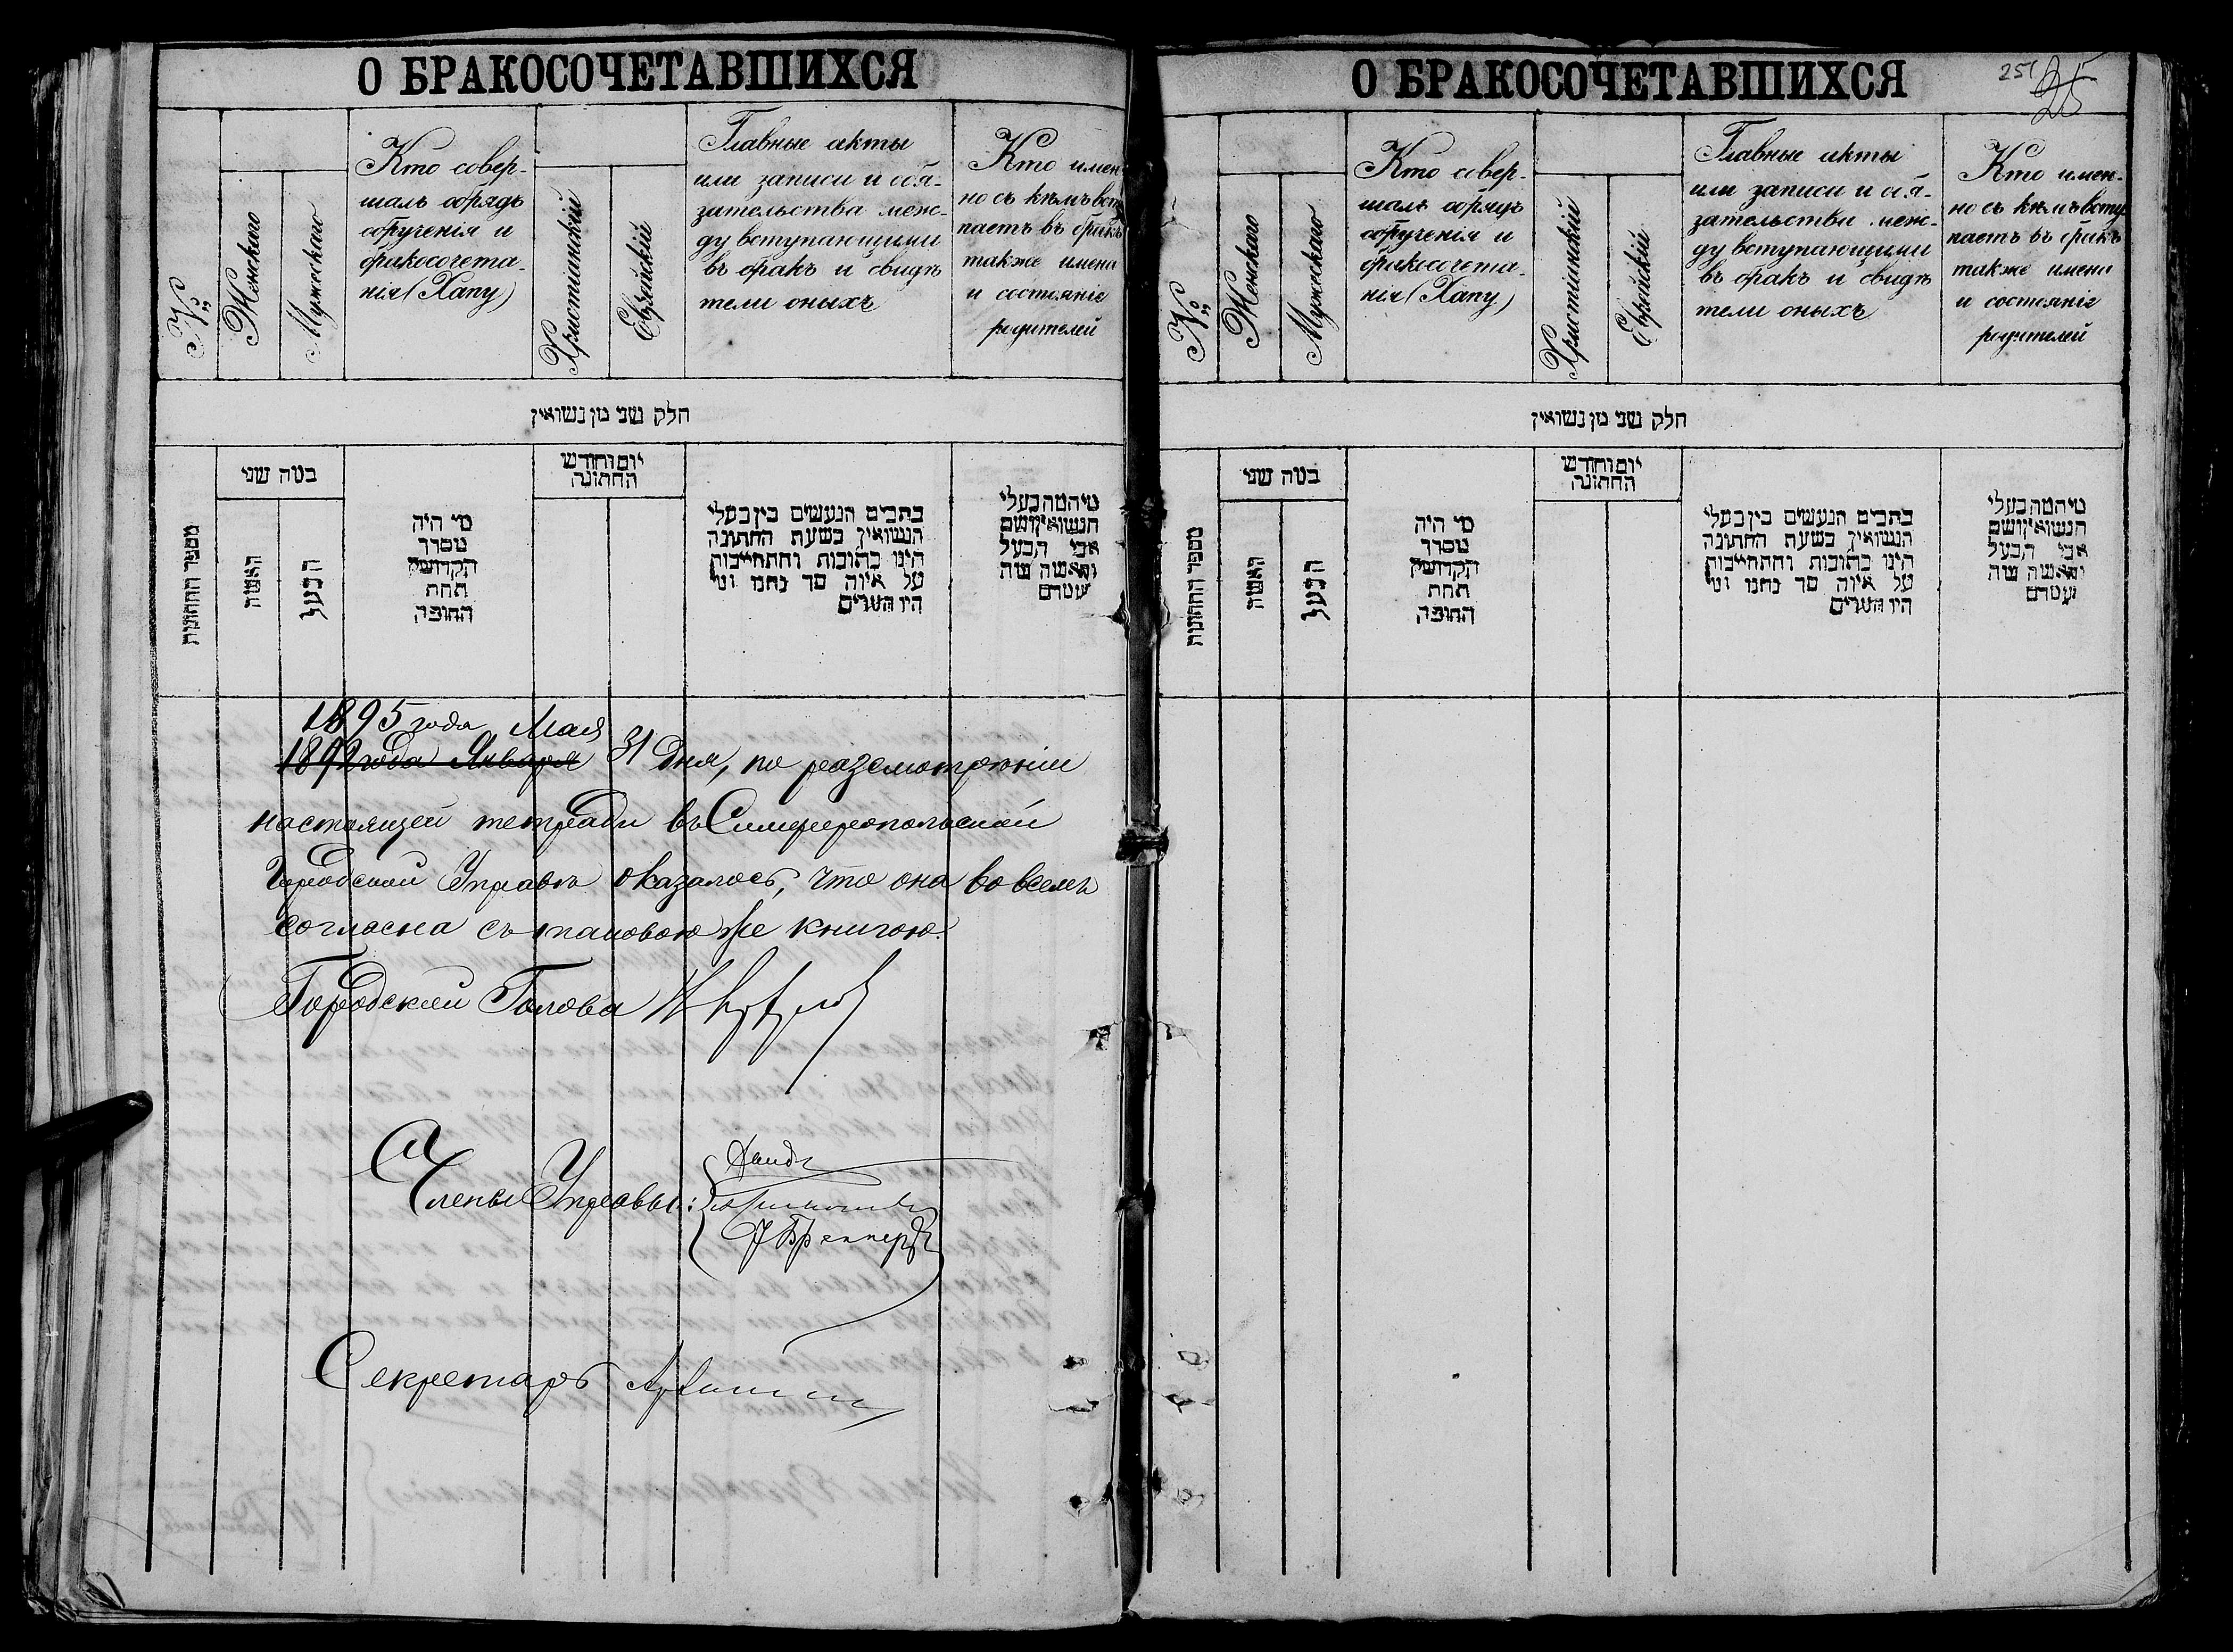 О БРАКОСОЧЕТАВШИХСЯ
№
Женскаго
Мужескаго
Кто совер-
шалъ обрядъ
обрученія и
бракосочета-
нія (Хапу)
Христіанскій
Еврейскій
Главные акты
или записи и обя-
зательства меж-
ду вступающими
въ бракъ и свидѣ
тели оныхъ
Кто имен
но съ кѣмъ всту
паетъ въ бракъ
также имена
и состояніе
родителей
חלק שני מן נשואין
מספר החתונות
כמה שני
האשה
הבעל
מי היה
מסדר
הקדושין
תחת
החופה
יום וחודש
החתונה
כתבים הנעשים בין בעלי
הנשואין בשעת החתונה
היינו כתובות והתחייבות
על איזה סך נתנו ומי
היו העדים
מיהמה בעלי
הנשואין ושם
אבי הבעל
והאשה ומה
מעמדם
1895 года Мая
1892 года Января 31 дня, по разсмотрѣніи
настоящей тетради въ Симферопольской
Городской Управѣ оказалось, что она во всемъ
согласна съ таковою же книгою.
Городской Голова
Члены Управы:
Секретарь
О БРАКОСОЧЕТАВШИХСЯ
251
25
№
Женскаго
Мужескаго
Кто совер-
шалъ обрядъ
обрученія и
бракосочета-
нія (Хапу)
Христіанскій
Еврейскій
Главные акты
или записи и обя-
зательства меж-
ду вступающими
въ бракъ и свидѣ
тели оныхъ
Кто имен-
но съ кѣмъ всту
паетъ въ бракъ
также имена
и состояніе
родителей
חלק שני מן נשואין
מספר החתונות
כמה שני
האשה
הבעל
מי היה
מסדר
הקדושין
תחת
החופה
יום וחודש
החתונה
כתבים הנעשים בין בעלי
הנשואין בשעת החתונה
היינו כתובות והתחייבות
על איזה סך נתנו ומי
היו העדים
מיהמה בעלי
הנשואין ושם
אבי הבעל
והאשה ומה
מעמדם